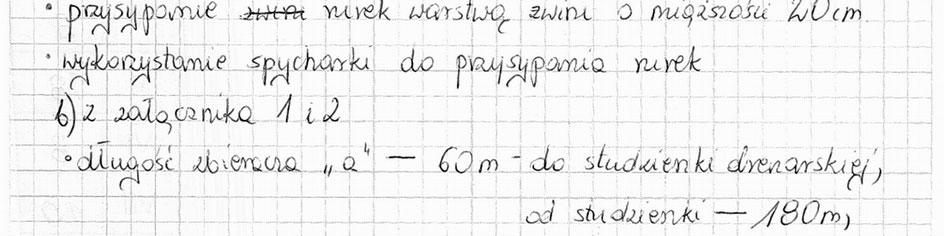 • przysypanie ~~żwira~~ rurek warstwą żwiru o miąższości 20cm
• wykorzystanie spycharki do przysypania rurek
b) z załącznika 1 i 2
• długość zbieracza „a" — 60m - do studzienki drenarskiej,
od studzienki — 180m,